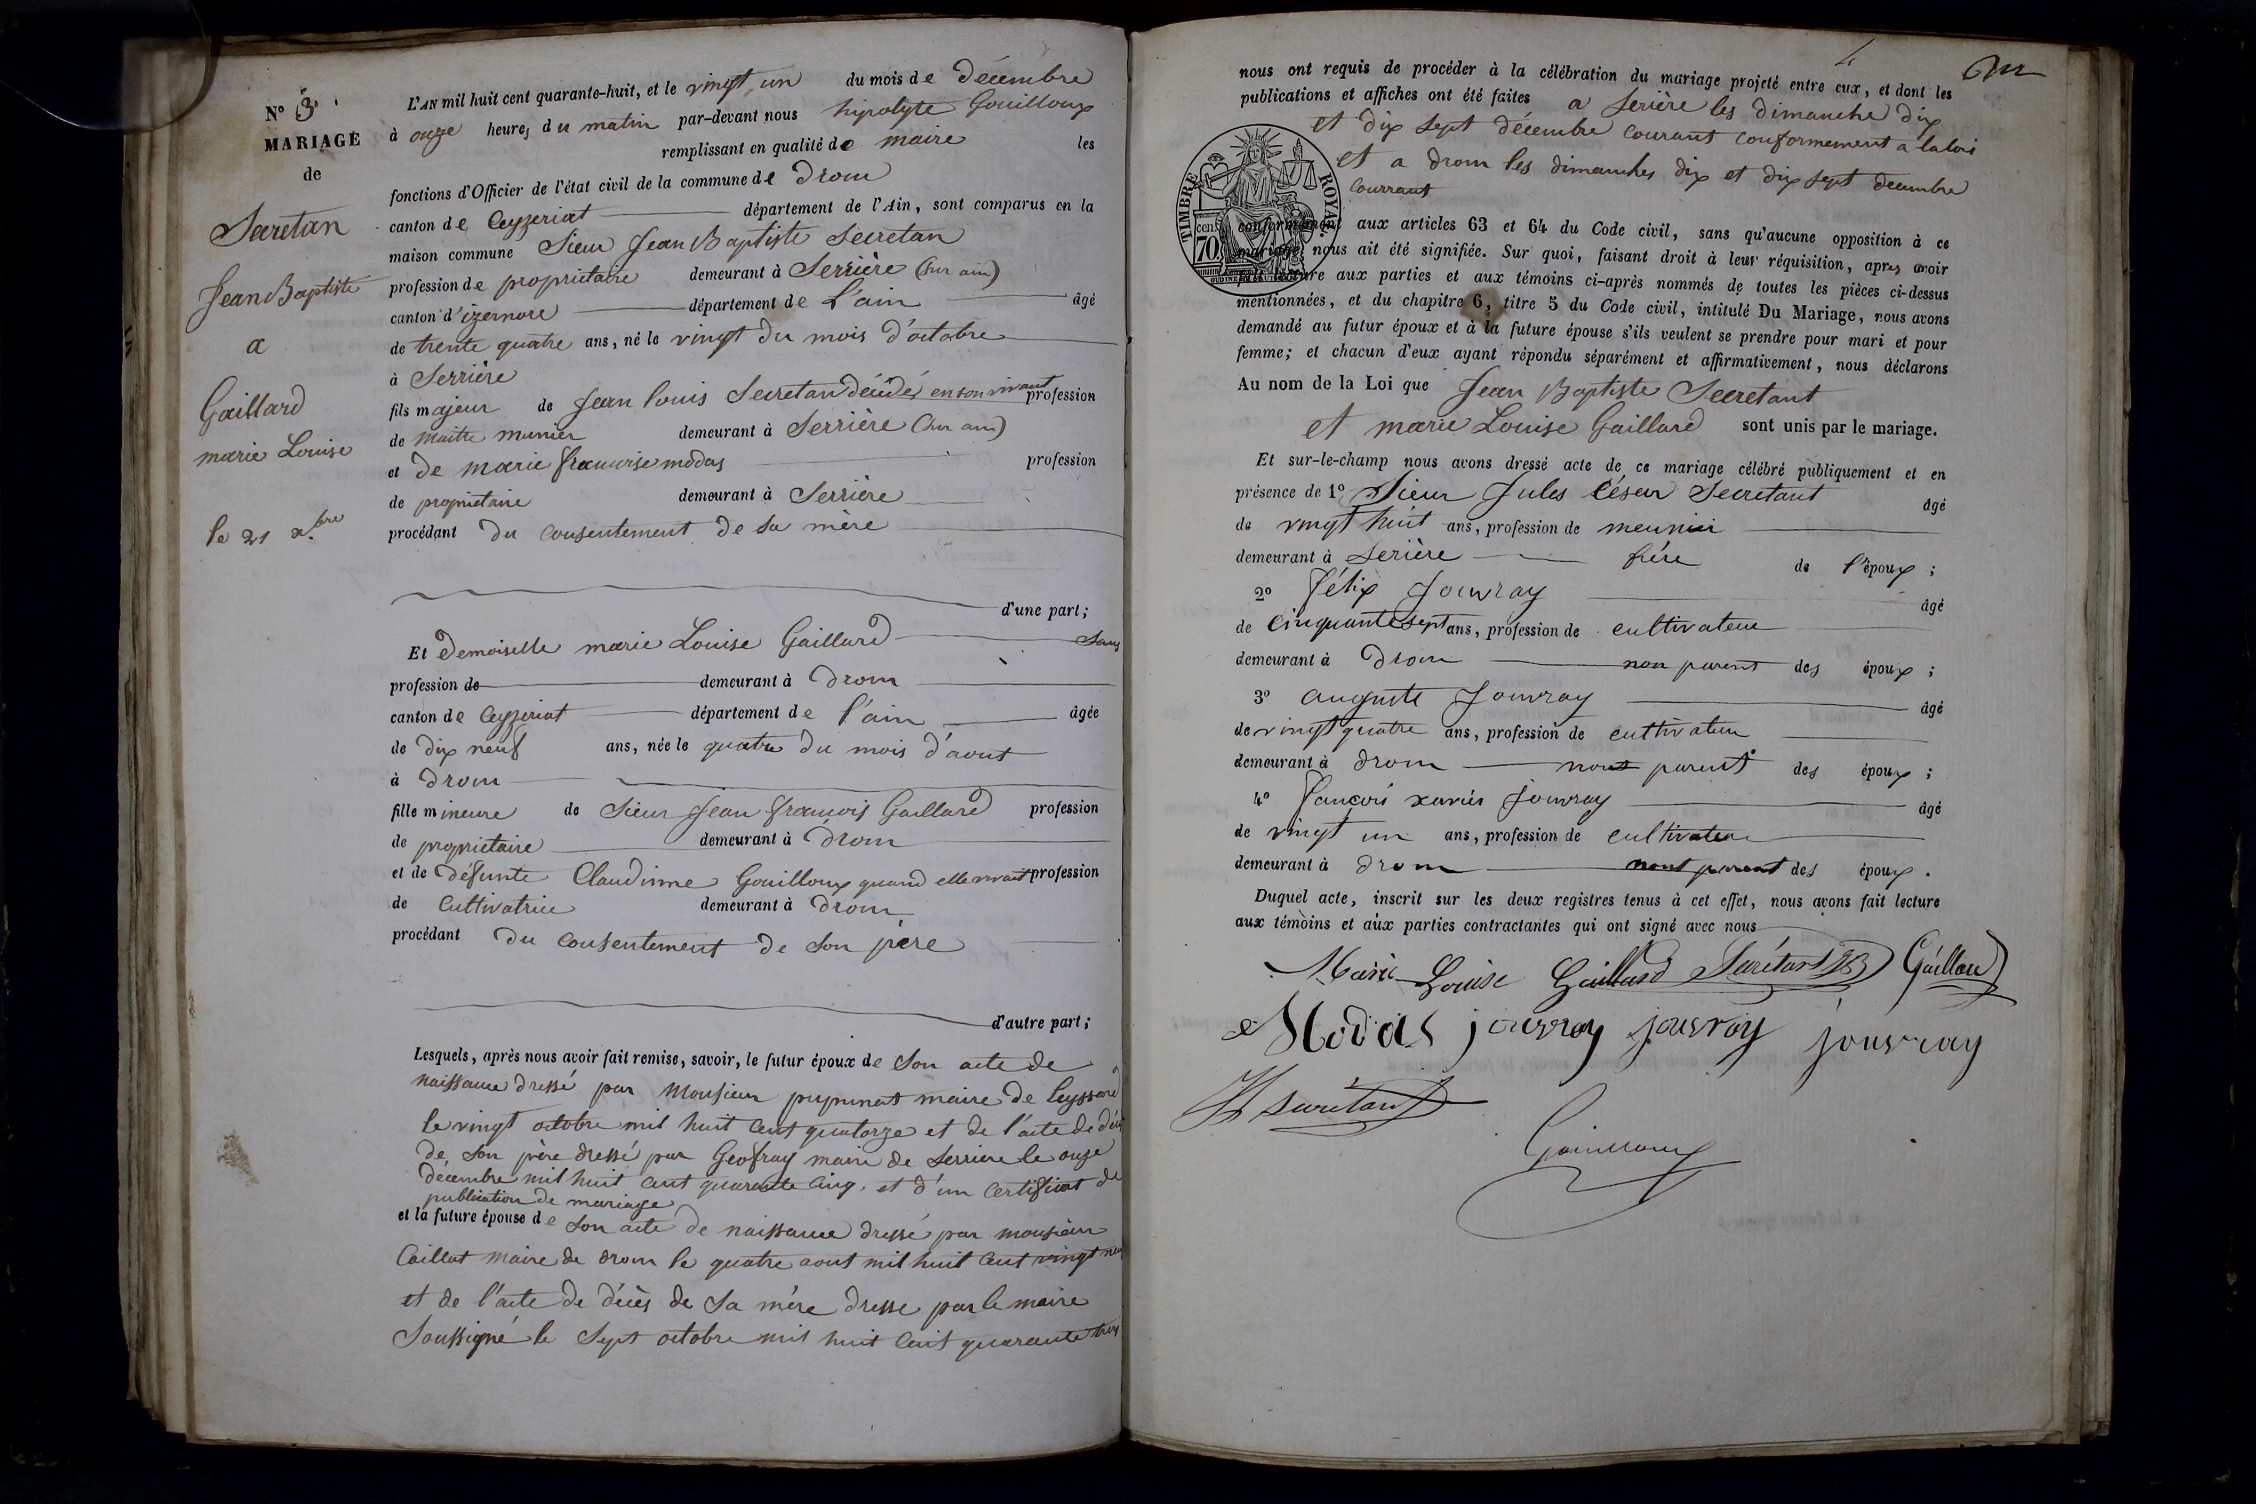 N° 3
MARIAGE
de
Secretan
Jean Baptiste
a
Gaillard
marie Louise
le 21 xbre
L'AN mil huit cent quarante-huit, et le vingt un du mois de décembre
à onze heures du matin par-devant nous hipolyte Gouilloux
remplissant en qualité de maire les
fonctions d'Officier de l'état civil de la commune de Drom
canton de Ceyzeriat département de l'Ain, sont comparus en la
maison commune Sieur Jean Baptiste Secretan
profession de propriétaire demeurant à Serrière (sur ain)
canton d'izernore département de L'ain âgé
de trente quatre ans, né le vingt du mois d'octobre
à Serrière
fils majeur de Jean Louis Secretan décédés en son vivant profession
de maitre munier demeurant à Serrière (sur ain)
et de marie francoise modas profession
de propriétaire demeurant à Serrière
procédant du consentement de sa mère
d'une part;
Et demoiselle marie Louise Gaillard sans
profession de demeurant à Drom
canton de Ceyzeriat département de l'ain âgée
de dix neuf ans, née le quatre du mois d'aout
à Drom
fille mineure de Sieur Jean francois Gaillard profession
de propriétaire demeurant à Drom
et de défunte Claudinne Gouilloux quand elle vivait profession
de Cultivatrice demeurant à Drom
procédant du consentement de son père
d'autre part;
Lesquels, après nous avoir fait remise, savoir, le futur époux de son acte de
naissance dressé par Monsieur maire de Leyssard
le vingt octobre mil huit cent quatorze et de l'acte de
de son père dressé par Geofray maire de Serriere le onze
décembre mil huit cent quarante cinq. et d'un certificat de
publication de mariage
et la future épouse de son acte de naissance dressé par monsieur
Caillat maire de drom le quatre aout mil huit cent vingt
et de l'acte de décès de sa mère dresse par le maire
Soussigné le Sept octobre mil huit cent quarante
4
nous ont requis de procéder à la célébration du mariage projeté entre eux, et dont les
publications et affiches ont été faites a Serière les dimanche dix
et dix sept décembre courant conformement a la loi
et a drom les dimanches dix et dix sept decembre
courrant
TIMBRE ROYAL
cent.
70
conformément aux articles 63 et 64 du Code civil, sans qu'aucune opposition à ce
mariage nous ait été signifiée. Sur quoi, faisant droit à leur réquisition, après avoir
fait lecture aux parties et aux témoins ci-après nommés de toutes les pièces ci-dessus
mentionnées, et du chapitre 6, titre 5 du Code civil, intitulé Du Mariage, nous avons
demandé au futur époux et à la future épouse s'ils veulent se prendre pour mari et pour
femme; et chacun d'eux ayant répondu séparément et affirmativement, nous déclarons
Au nom de la Loi que Jean Baptiste Secretant
et marie Louise Gaillard sont unis par le mariage.
Et sur-le-champ nous avons dressé acte de ce mariage célébré publiquement et en
présence de 1° Sieur Jules César Secretant âgé
de vingt huit ans, profession de meunier
demeurant à Serière frére de l'époux ;
2° Félix Jouvray âgé
de cinquante sept ans, profession de cultivateur
demeurant à Drom non parent des époux ;
3° auguste Jouvray âgé
de vingt quatre ans, profession de cultivateur
demeurant à Drom nont parent des époux ;
4° françois xavier Jouvray âgé
de vingt un ans, profession de cultivateur
demeurant à drom nont parent des époux.
Duquel acte, inscrit sur les deux registres tenus à cet effet, nous avons fait lecture
aux témoins et aux parties contractantes qui ont signé avec nous
Marie Louise Gaillard Secrétant JB Gaillard
Modas jouvray jouvray jouvray
secrétant
Gouilloux